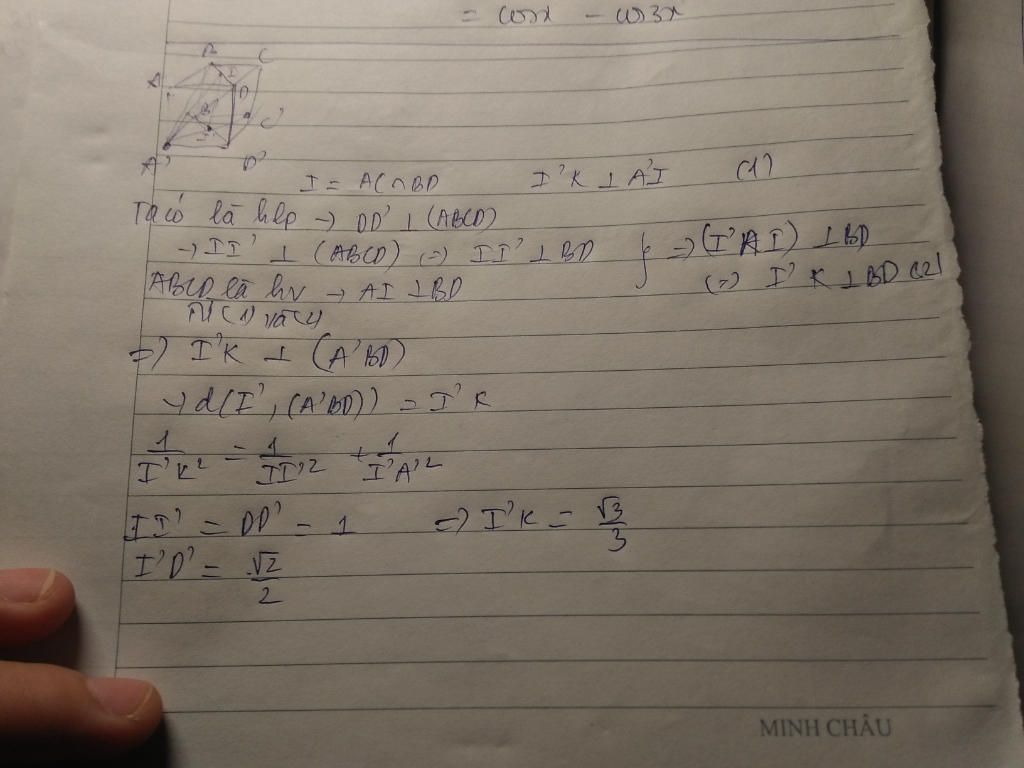 = cosx - cos3x
B C
A I D
B'
C'
A' D'
I = AC ∩ BD I'K ⊥ A'I (1)
Ta có là hlp → DD' ⊥ (ABCD)
→ II' ⊥ (ABCD) => II' ⊥ BD } => (I'AI) ⊥ BD
ABCD là hv → AI ⊥ BD (=) I'K ⊥ BD (2)
Từ (1) và (2)
=> I'K ⊥ (A'BD)
→ d(I', (A'BD)) = I'K
1/I'K² = 1/II'² + 1/I'A'²
II' = DD' = 1 => I'K = √3/3
I'D' = √2/2
MINH CHÂU